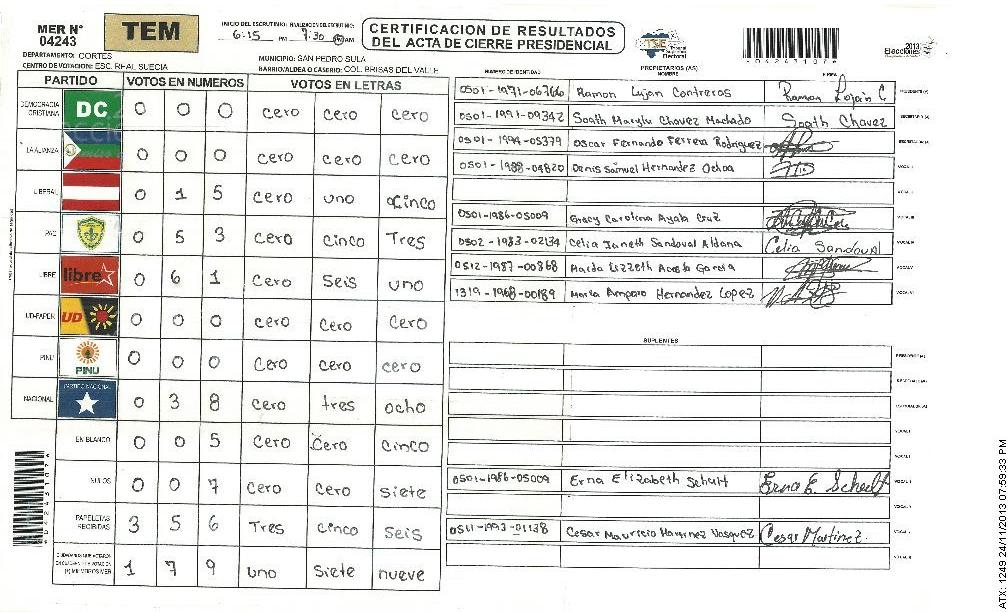 MER N° 04243
TEM
INICIO DEL ESCRUTINIO: FINALIZACION DEL ESCRUTINIO:
6:15 PM 7:30 AM
CERTIFICACION DE RESULTADOS
DEL ACTA DE CIERRE PRESIDENCIAL
TSE Tribunal Supremo Electoral
042431076
Elecciones 2013
DEPARTAMENTO: CORTES
MUNICIPIO: SAN PEDRO SULA
CENTRO DE VOTACION: ESC. REAL SUECIA
BARRIO/ALDEA O CASERIO: COL. BRISAS DEL VALLE
PARTIDO VOTOS EN NUMEROS VOTOS EN LETRAS
DEMOCRACIA CRISTIANA DC 0 0 0 cero cero cero
LA ALIANZA 0 0 0 cero cero cero
LIBERAL 0 1 5 cero uno cinco
PAC 0 5 3 cero cinco Tres
LIBRE libre 0 6 1 Cero Seis uno
UD-FAPER UD 0 0 0 cero cero Cero
PINU PINU 0 0 0 Cero cero cero
NACIONAL PARTIDO NACIONAL 0 3 8 cero tres ocho
EN BLANCO 0 0 5 Cero Cero cinco
NULOS 0 0 7 cero cero siete
PAPELETAS RECIBIDAS 3 5 6 Tres cinco seis
1 7 9 uno siete nueve
NUMERO DE IDENTIDAD PROPIETARIOS (AS) NOMBRE FIRMA
Ramon Lujan Contreras Ramon Lojan C PRESIDENTE (A)
0501-1991-09342 Soath Marylu Chavez Machado Soath Chavez SECRETARIA (A)
0501-1994-05379 Oscar Fernando Ferrera Rodriguez ESCRUTADOR (A)
0501-1988-04820 Denis Samuel Hernandez Ochoa VOCAL I
0501-1986-05009 Gracy Carolina Ayala Cruz VOCAL III
0502-1983-02134 Celia Janeth Sandoval Aldana Celia Sandoval VOCAL IV
0512-1987-00868 Lizzeth Acosta Garcia VOCAL V
1319-1968-00189 Maria Amparo Hernandez Lopez VOCAL VI
SUPLENTES
PRESIDENTE (A)
SECRETARIO (A)
ESCRUTADOR (A)
VOCAL I
0501-1986-05009 Erna Elizabeth Schutt Erna E. Schutt
0511-1993-01138 Cesar Mauricio Martinez Vasquez Cesar Martinez.
ATX: 1249 24/11/2013 07:59:33 PM